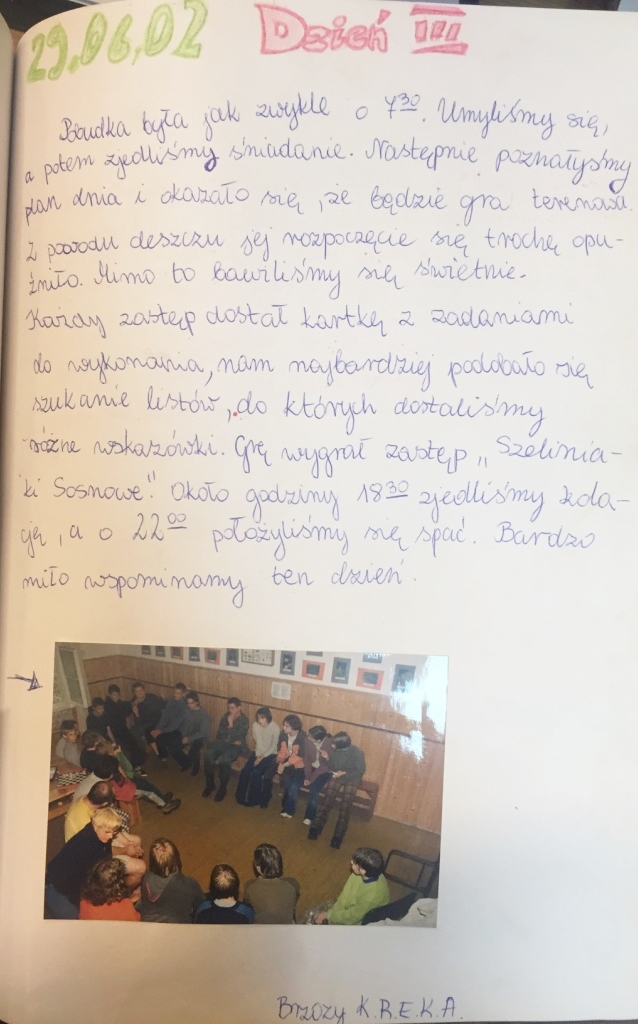 29.06.02 Dzień III
Pobudka była jak zwykle o 7³⁰. Umyliśmy się,
a potem zjedliśmy śniadanie. Następnie poznałyśmy
plan dnia i okazało się, że będzie gra terenowa.
Z powodu deszczu jej rozpoczęcie się trochę opu-
źniło. Mimo to bawiliśmy się świetnie.
Każdy zastęp dostał kartkę z zadaniami
do wykonania, nam najbardziej podobało się
szukanie listów, do których dostaliśmy
różne wskazówki. Grę wygrał zastęp „Szelinia-
ki Sosnowe". Około godziny 18³⁰ zjedliśmy kola-
cję, a o 22⁰⁰ położyliśmy się spać. Bardzo
miło wspominamy ten dzień.
Brzozy K.R.E.K.A.